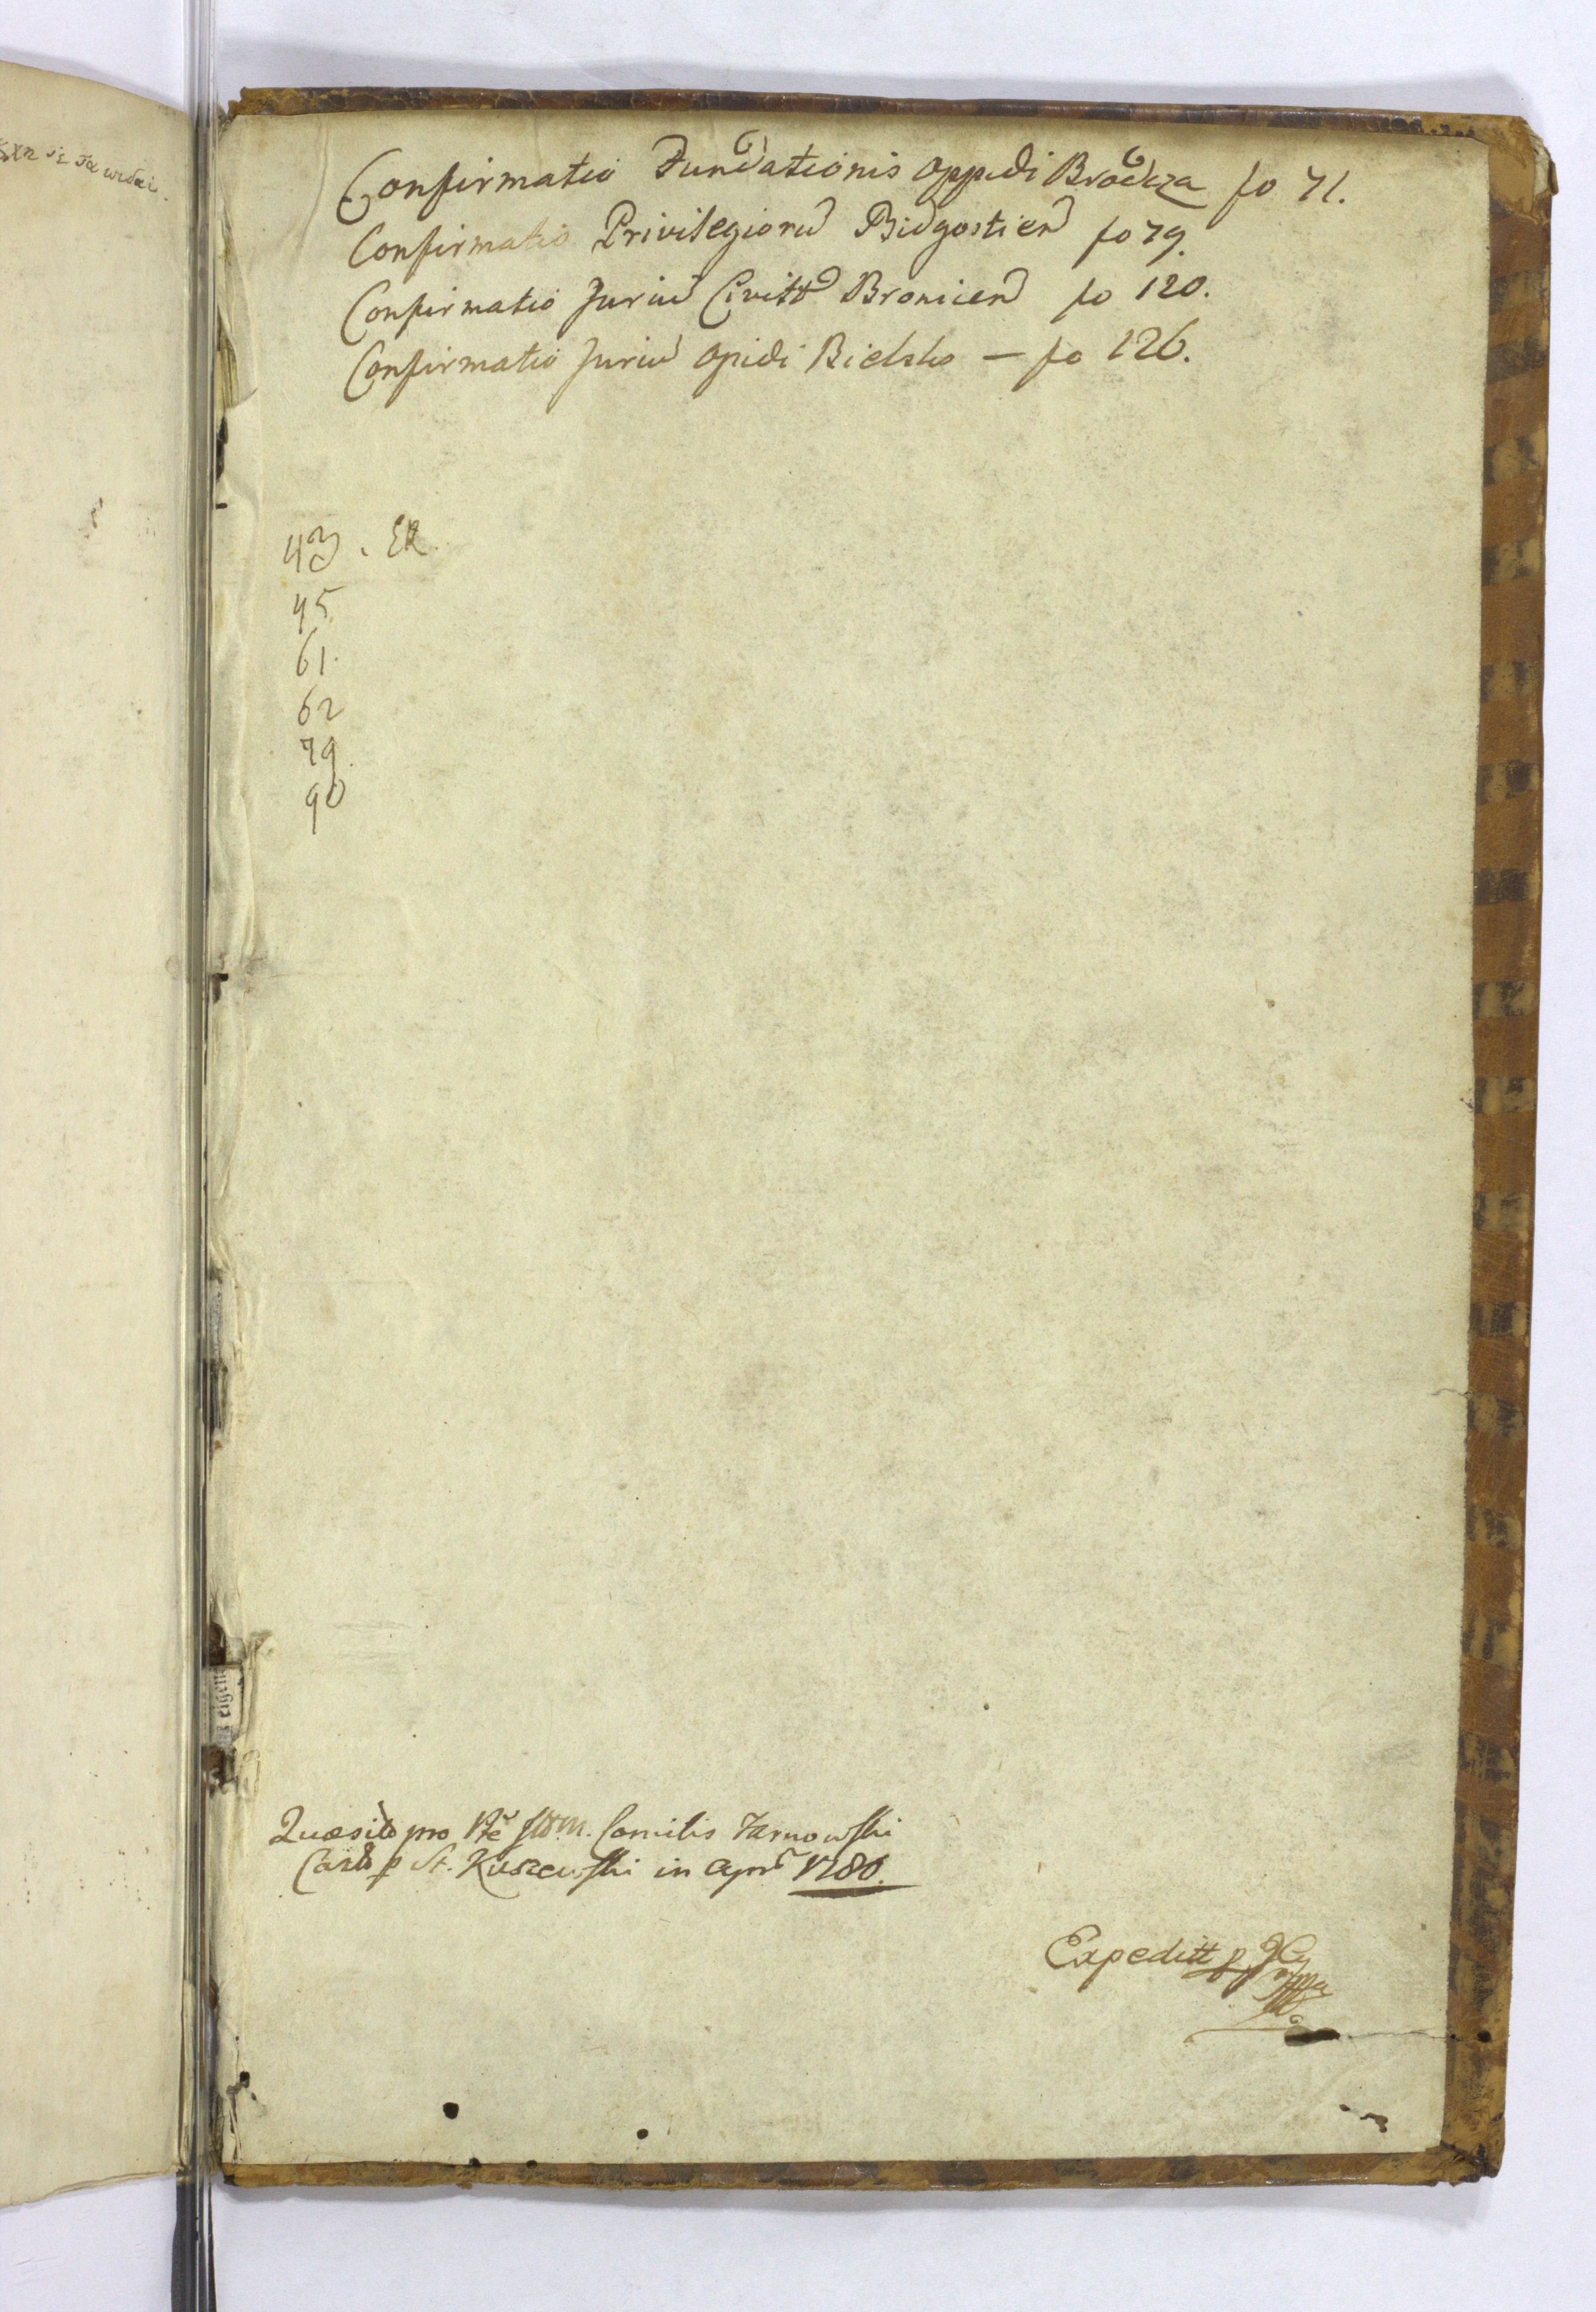 Confirmatio Fundationis Oppidi Brodcza fo 71.
Confirmatio Privilegioru Bidgostien fo 79.
Confirmatio Juriu Civitt Bronicen fo 120.
Confirmatio Juriu Opidi Bielsko — fo 126.
43. ER
45
61.
62
79.
90
Quæsitὸ pro Comitis Tarnowski
p St. Kuszewski in Apr 1780.
Expeditt p
eigen